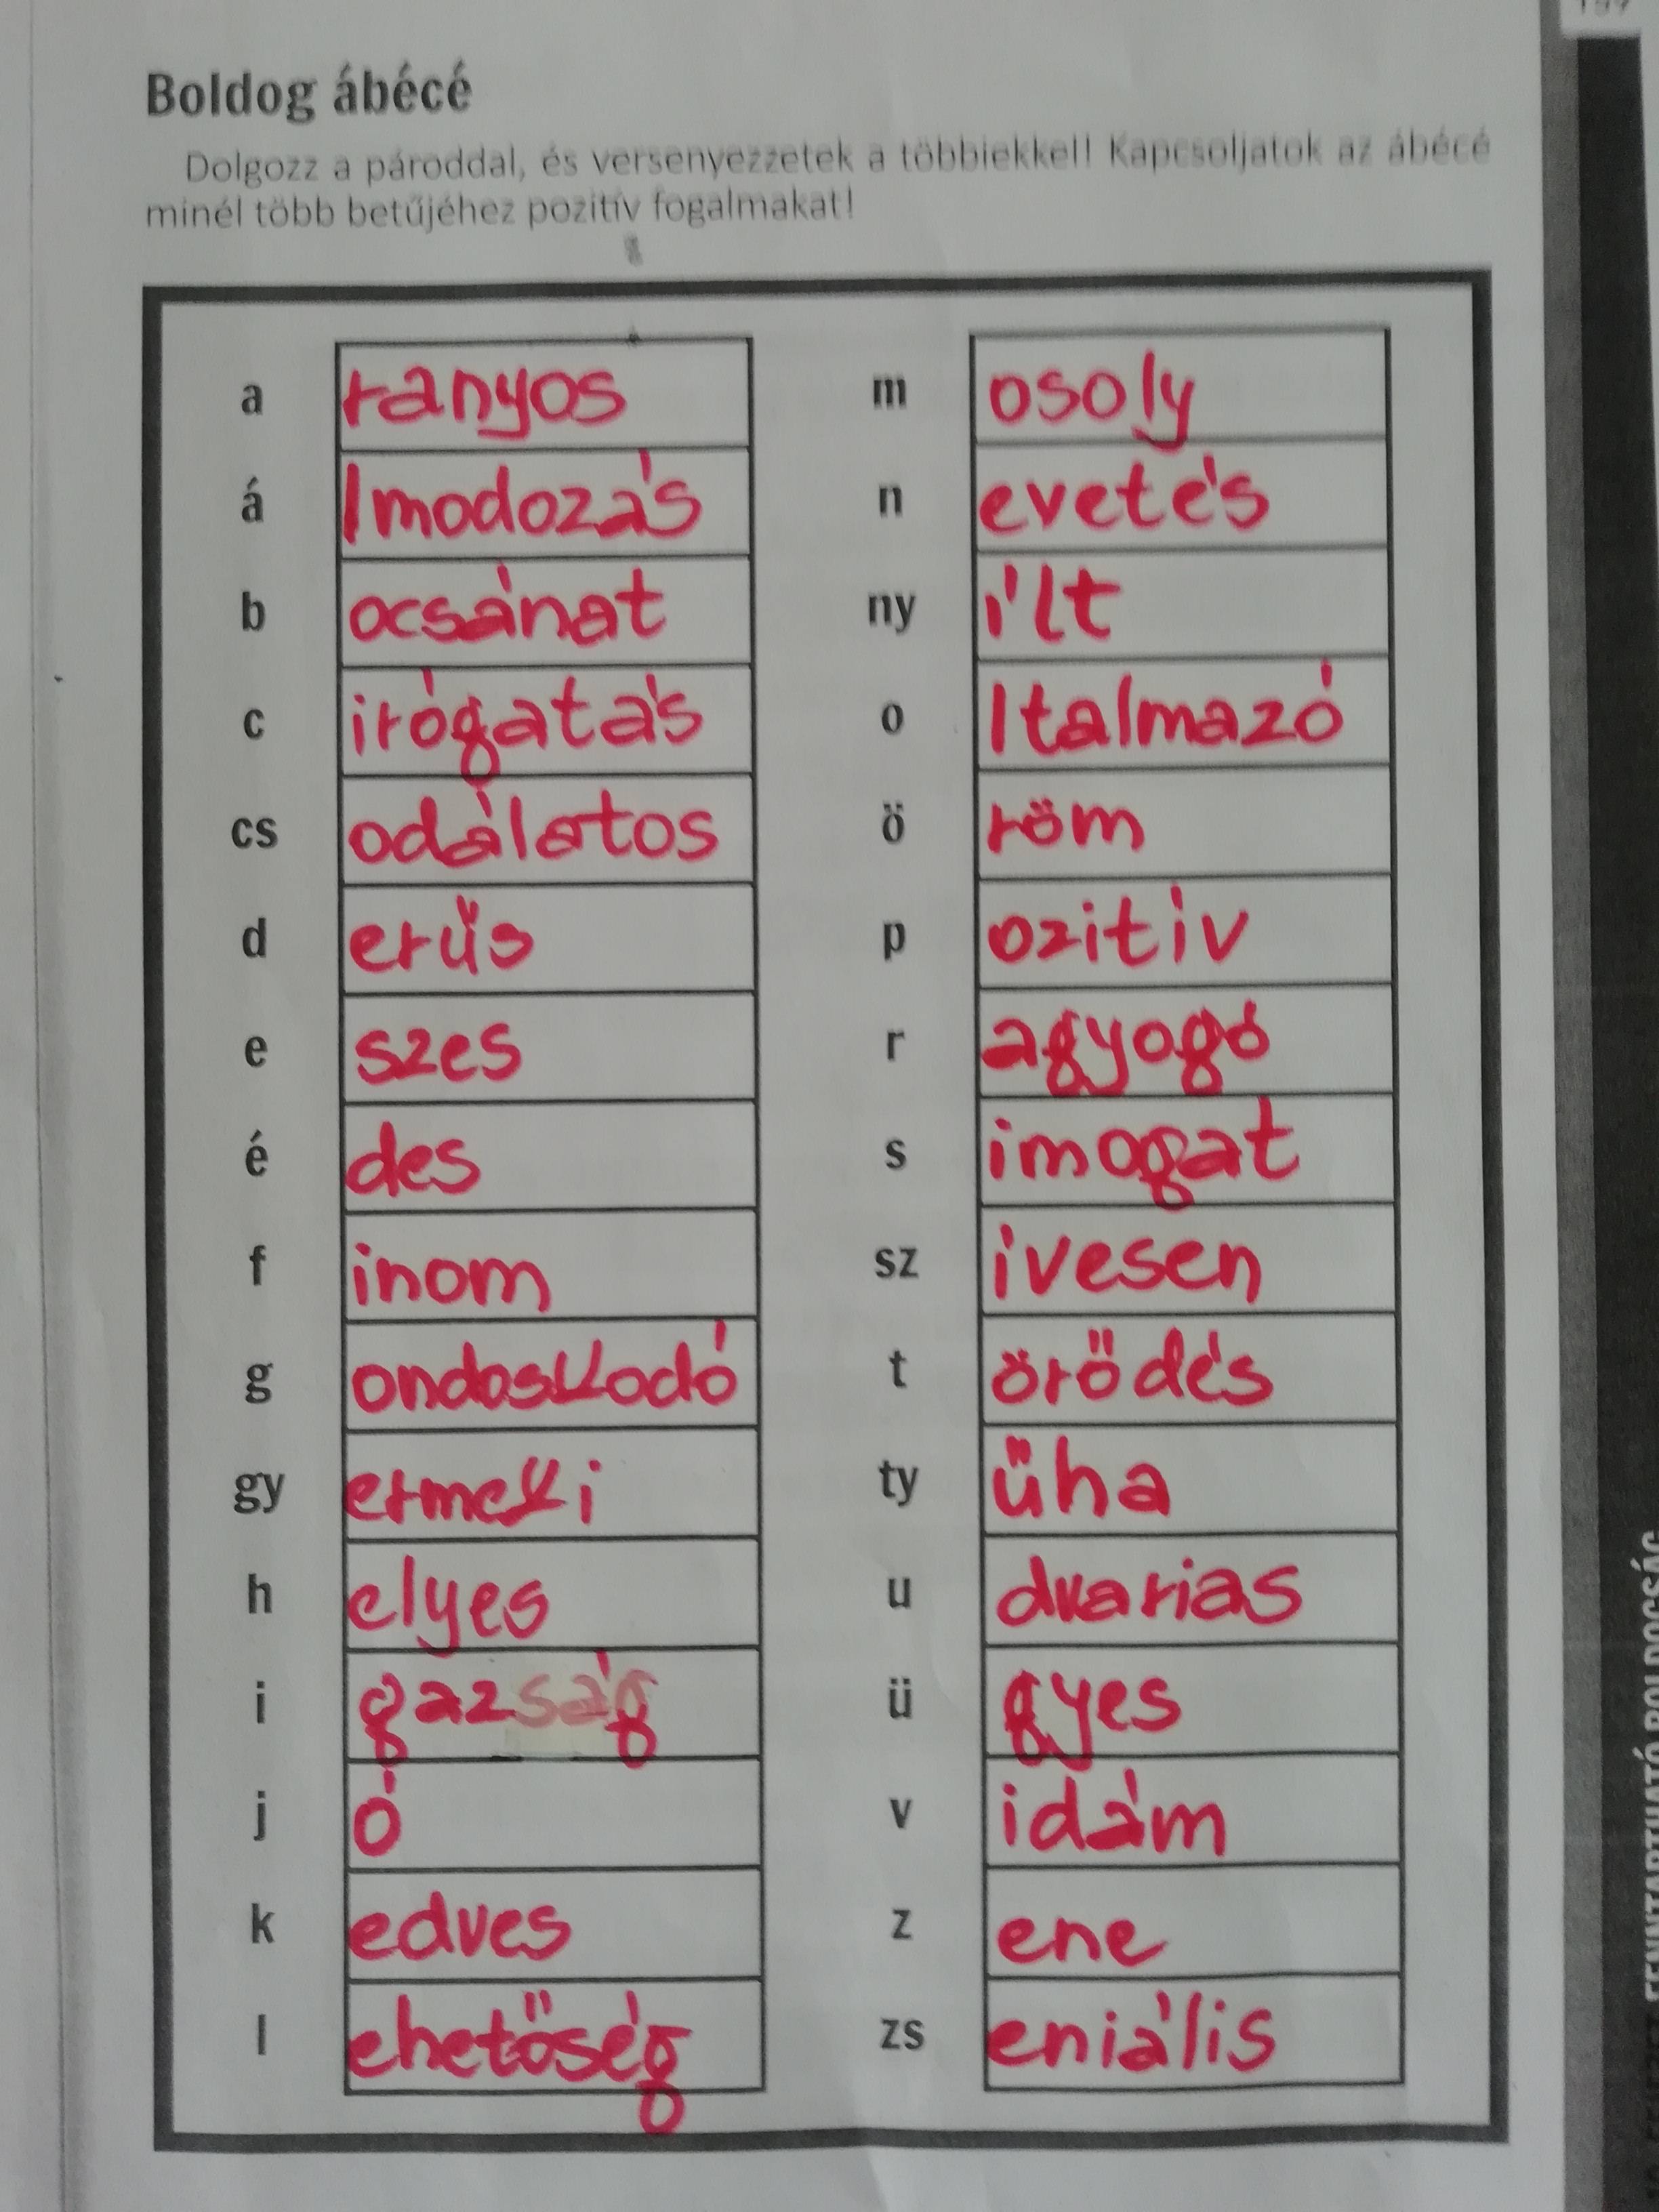 Boldog ábécé
Dolgozz a pároddal, és versenyezzetek a többiekkel! Kapcsoljatok az ábécé
minél több betűjéhez pozitív fogalmakat!
a ranyos
á lmodozás
b ocsánat
c irógatás
cs odálatos
d erűs
e szes
é des
f inom
g ondoskodó
gy ermeki
h elyes
i gazság
j ó
k edves
l ehetőség
m osoly
n evetés
ny ílt
o ltalmazó
ö röm
p ozitív
r agyogó
s imogat
sz ívesen
t örődés
ty űha
u dvarias
ü gyes
v idám
z ene
zs eniális
FENNTARTHATÓ BOLDOGSÁG